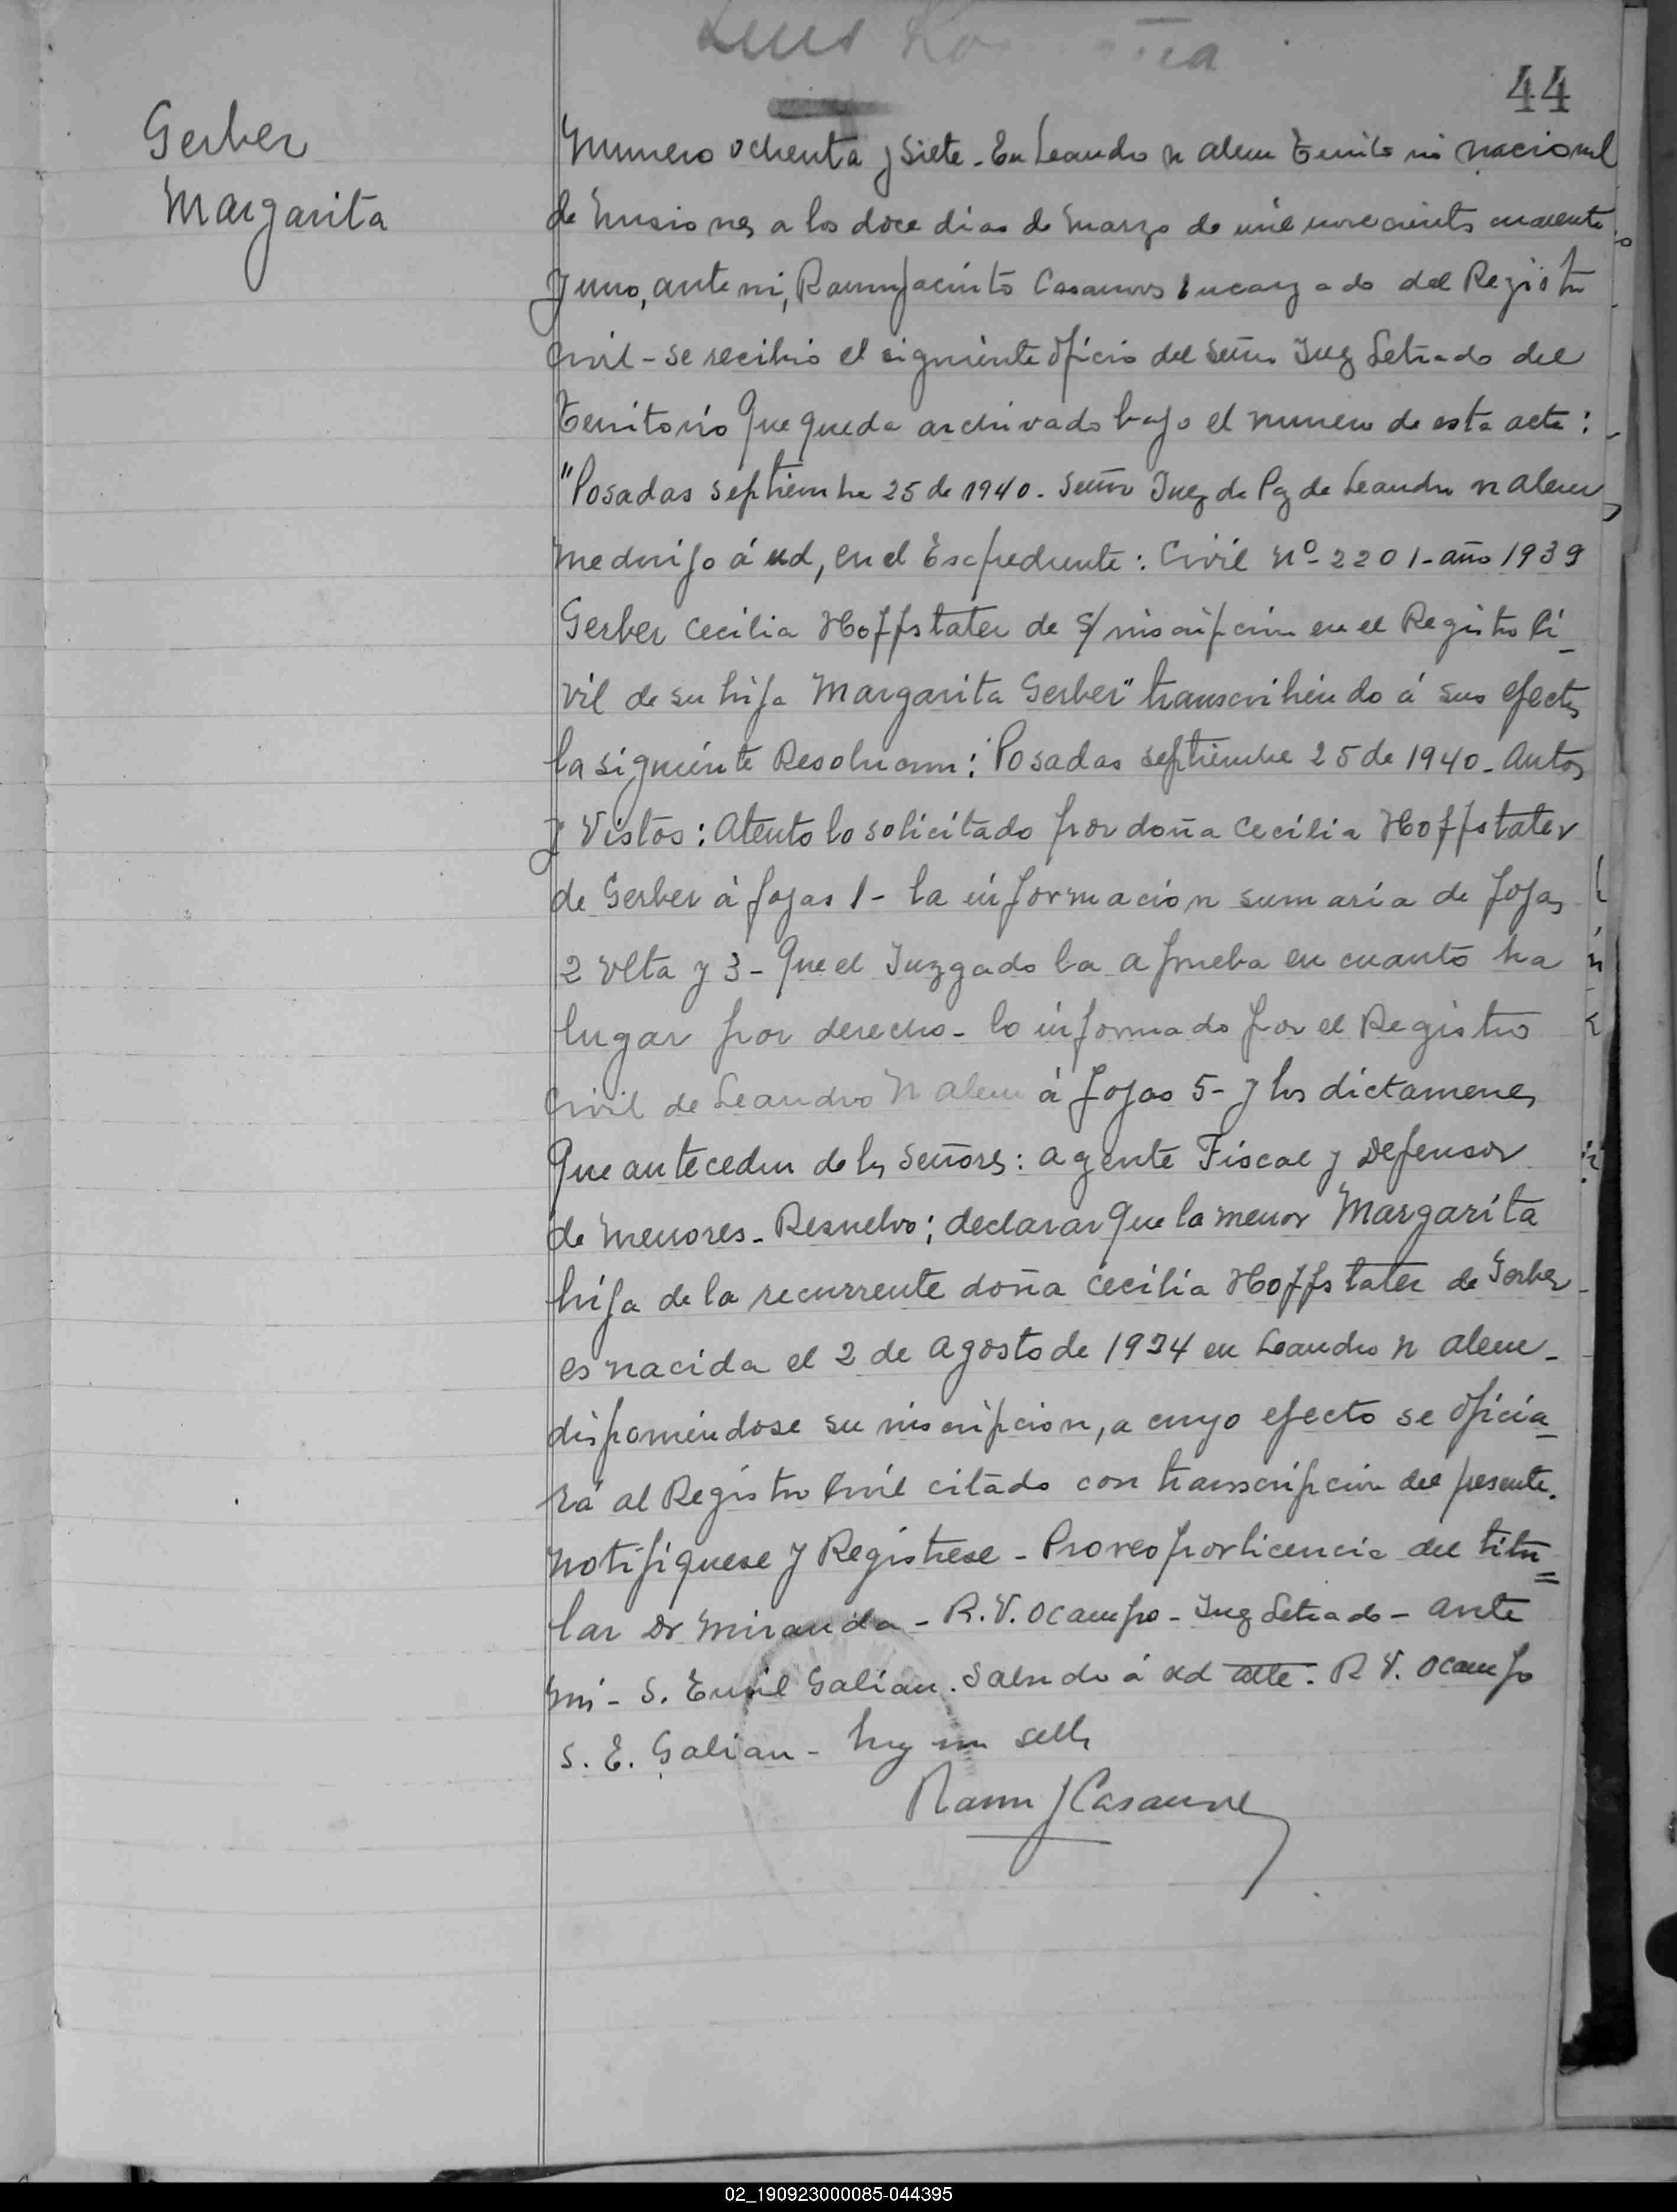 Luis
44
Gerber
Margarita
Numero ochenta y siete - En Leandro N Alem Territorio nacional
de Misiones a los doce dias de Marzo de mil novecientos cuarenta
y uno, ante mi, Ramon Jacinto Casanova Encargado del Registro
Civil - se recibio el siguiente oficio del Señor Juez Letrado del
Territorio Que queda archivado bajo el numero de esta acta:
"Posadas septiembre 25 de 1940 - Señor Juez de Paz de Leandro N Alem
me dirijo á ud, en el Escpediente: Civil Nº 2201 - año 1939
Gerber Cecilia Hoffstater de S/ inscripcion en el Registro Ci_
vil de su hija Margarita Gerber" transcribiendo á sus efectos
la siguiente Resolucion: Posadas septiembre 25 de 1940 - Autos
y Vistos: Atento lo solicitado por doña Cecilia Hoffstater
de Gerber à fojas 1 - la información sumaria de fojas
2 vlta y 3 - Que el Juzgado la aprueba en cuanto ha
lugar por derecho - lo informado por el Registro
Civil de Leandro N Alem á fojas 5 - y los dictamenes
Que anteceden de los Señores: agente Fiscal y Defensor
de Menores - Resuelvo; declarar Que la menor Margarita
hija de la recurrente doña Cecilia Hoffstater de Gerber
es nacida el 2 de Agosto de 1934 en Leandro N Alem -
disponiendose su inscripcion, a cuyo efecto se oficia_
rá al Registro Civil citado con transcripcion del presente.
Notifiquese y Registrese - Proveo por licencia del titu=
lar Dr Miranda - R. V. Ocampo - Juez Letrado - Ante
mi - S. Emil Galian. Saludo á ud atte. R V. Ocampo
S. E. Galian - hay un sello
Ramon J Casanova
02_190923000085-044395